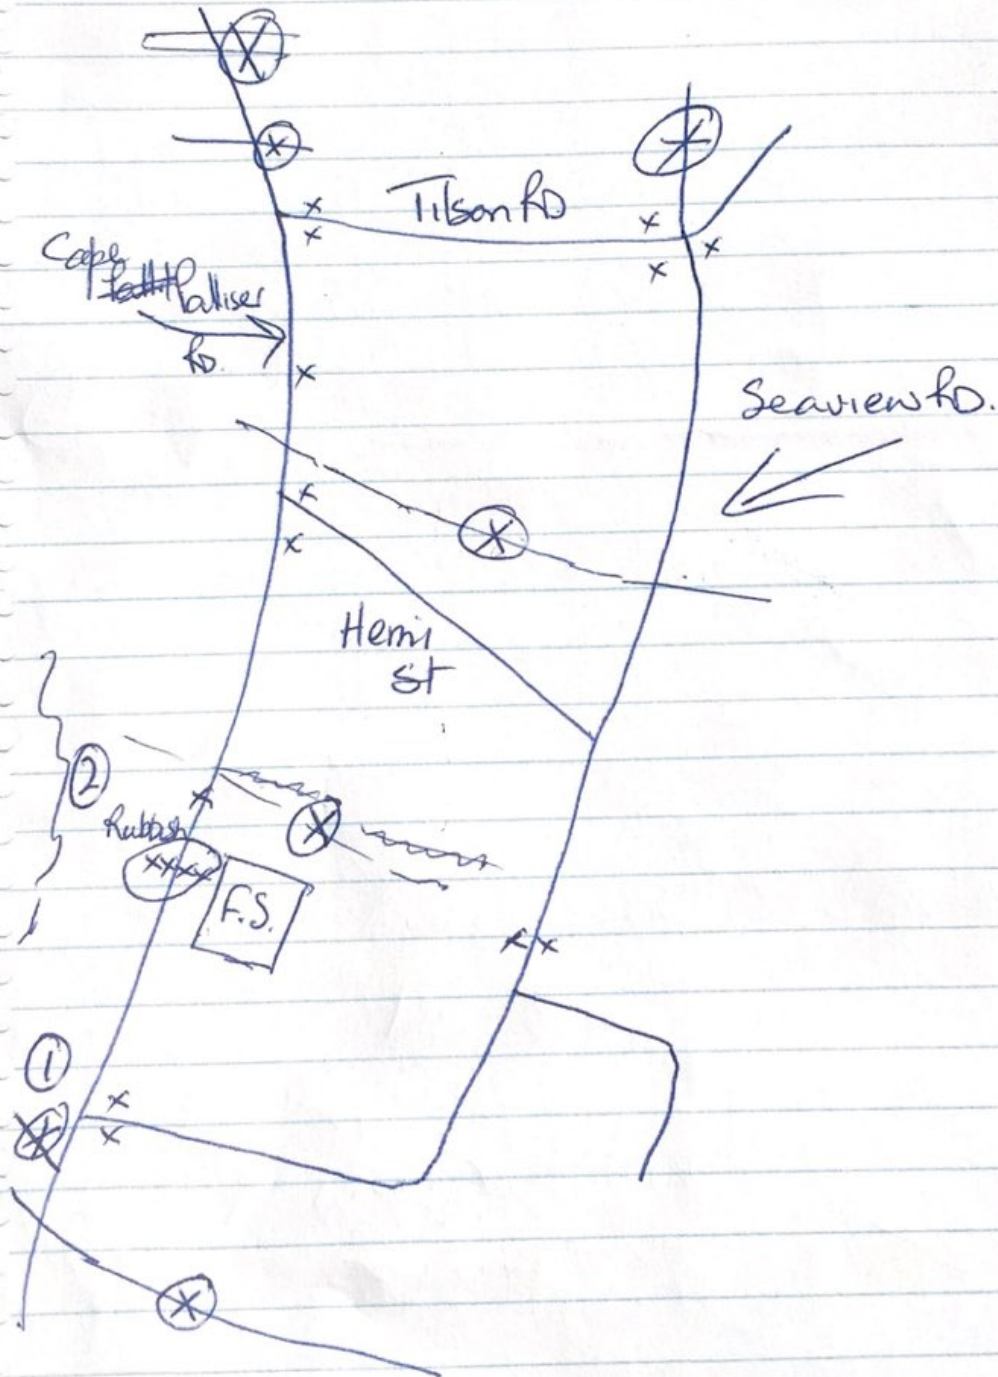 Tilson RD
Cape
Palliser
RD.
Seaview RD.
Hemi
St
2
Rubbish
F.S.
1